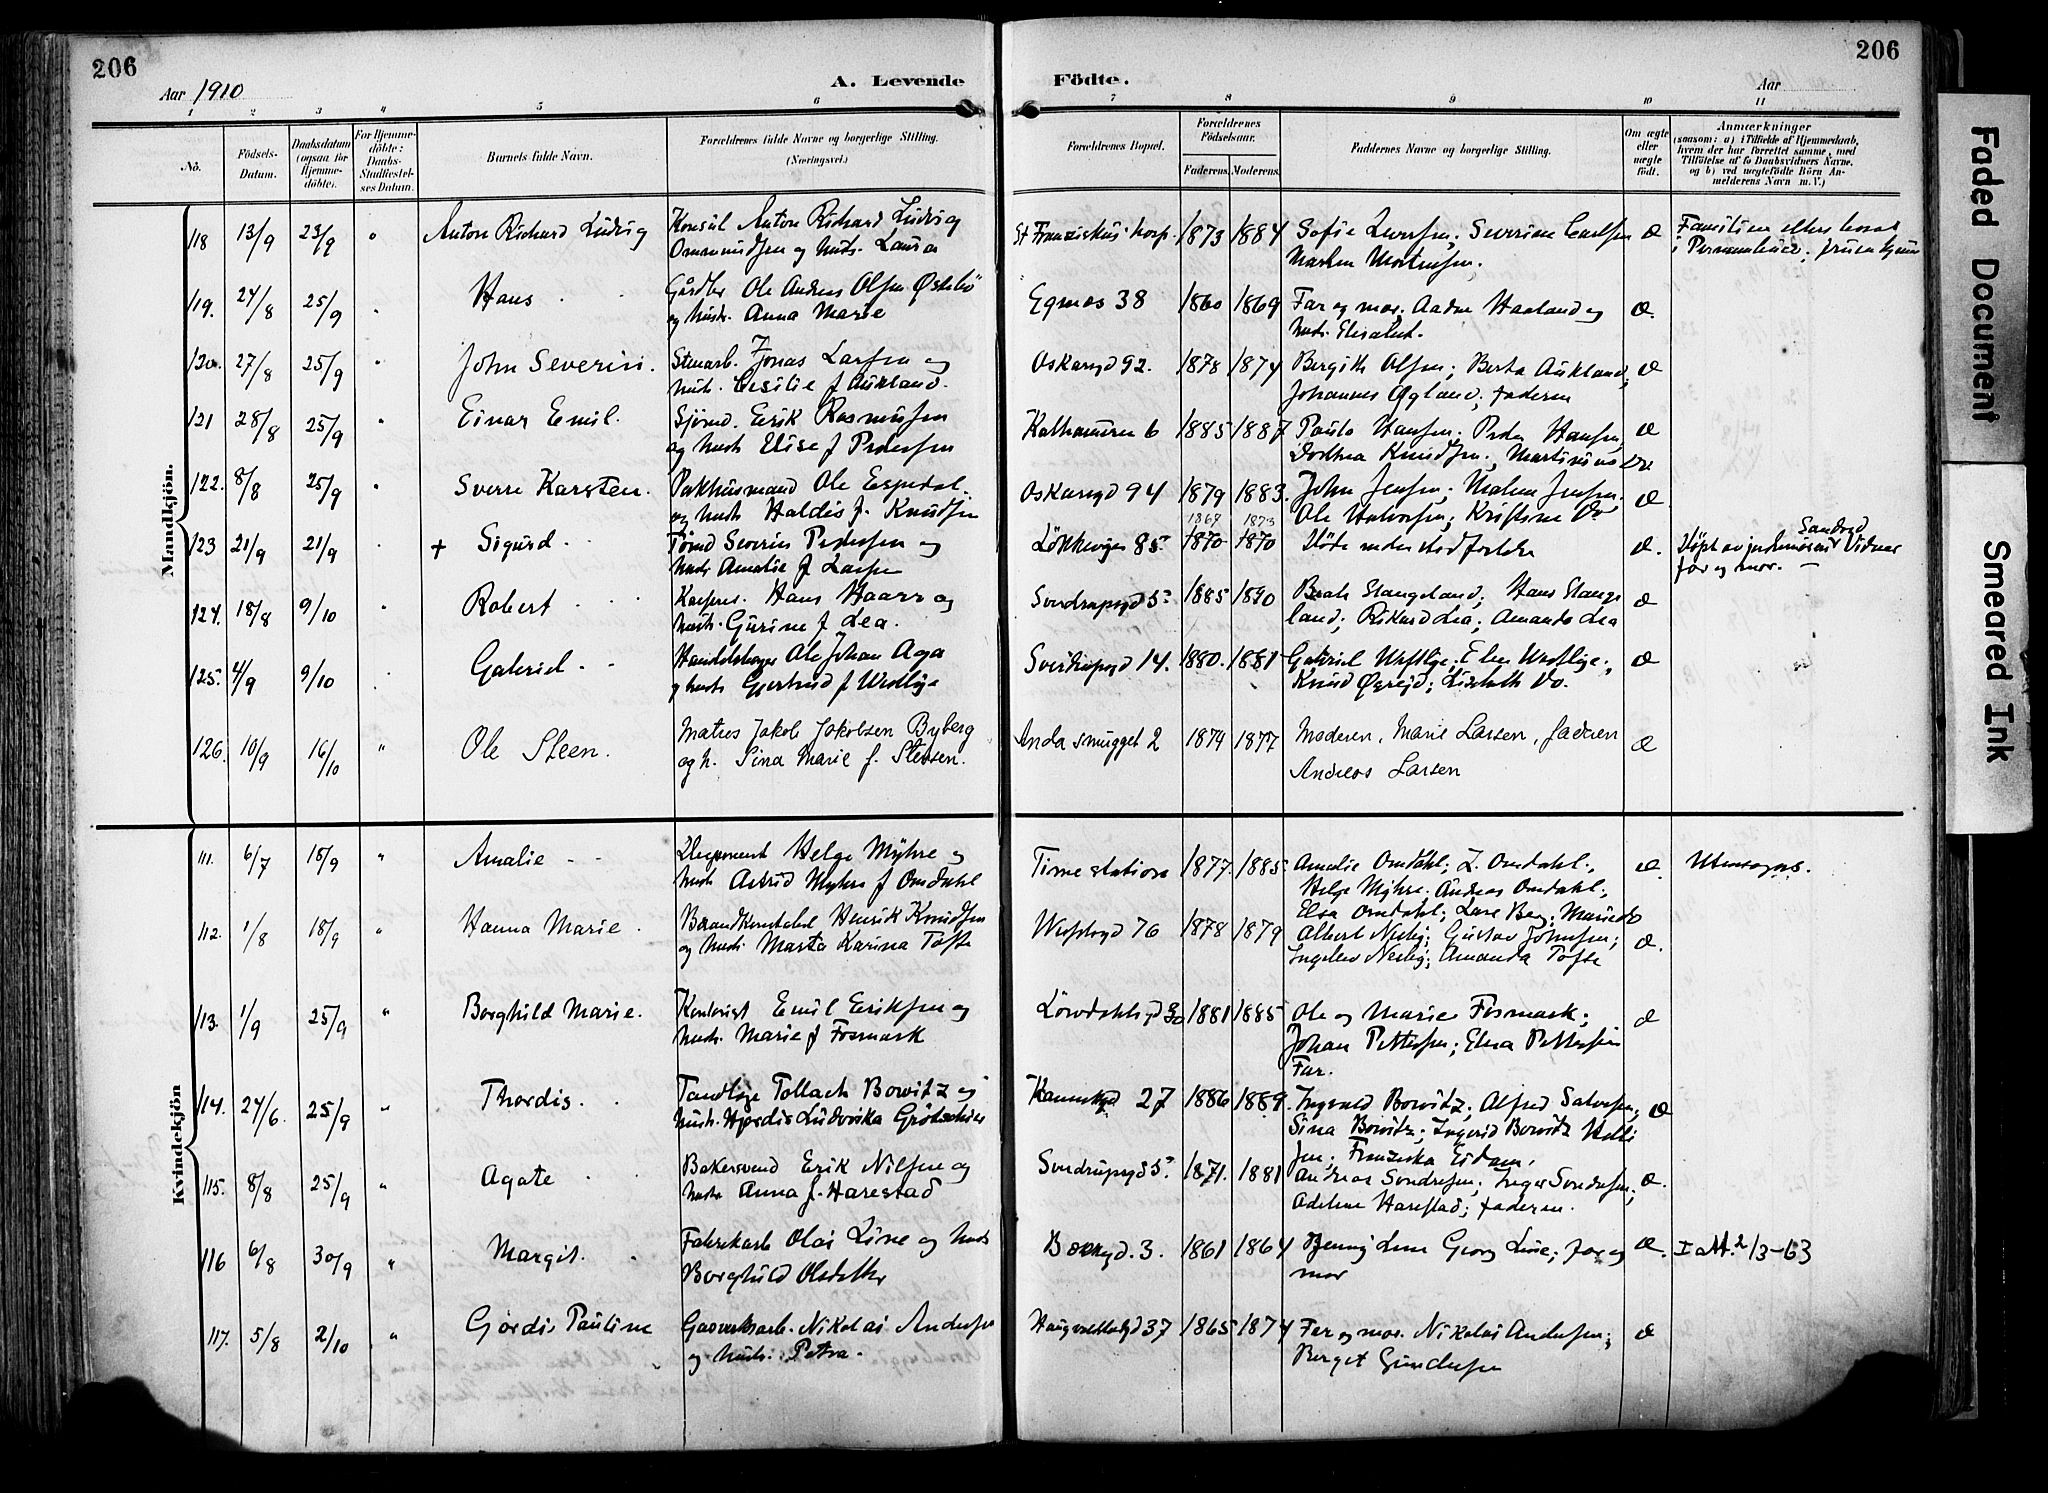 206
206
Aar 1910
A. Levende
Födte.
Aar
1 2 3 4 5 6 7 8 9 10 11
No.
Födsels-
Datum.
Daabsdatum
(ogsaa for
Hjemme-
döbte).
For Hjemme-
döbte:
Daabs-
Stadfæstel-
ses Datum.
Barnets fulde Navn.
Forældrenes fulde Navne og borgerlige Stilling.
(Næringsvei.)
Forældrenes Bopæl.
Forældrenes
Födselsaar.
Faderens.
Moderens.
Faddernes Navne og borgerlige Stilling.
Om ægte
eller
uægte
födt.
Anmærkninger
(saasom: a) i Tilfælde af Hjemmedaab,
hvem der har forrettet samme, med
Tilföielse af to Daabsvidners Navne,
og b) ved uægtefödte Börn An-
melderens Navn m. V.)
Mandkjön.
118 13/9 23/9 " Anton Richard Ludvig
Konsul Anton Richard Ludvig
Ommundsen og hust. Laura
St Franziskus hosp. 1873 1884
Sofie Severine Carlsen
Æ
Familien ellers bosat
i
119. 24/8 25/9 " Hans
Gårdbr Ole Andreas Olsen Østebö
og hust. Anna Marie
Egnæs 38 1860 1869
Far og mor. Aadne Haaland og
hust. Elisabet.
Æ.
120. 27/8 25/9 " John Severin.
Stuearb. Jonas Larsen og
hust. Cesilie f Aukland.
Oskarsgd 92. 1878 1874
Bergith Olsen; Berta Aukland;
Johannes Øgland; Faderen
Æ
121 28/8 25/9 " Einar Emil.
Sjömd. Erik Rasmussen
og hust. Elise f Pedersen
Kalhammeren 6 1885 1887
Paula Hansen; Peder Hansen;
Dorthea Knudsen; Martinius Do
Æ
122. 8/8 25/9 " Sverre Karsten.
Pakhusmand Ole Espedal
og hust. Haldis f. Knudsen
Oskarsgd 94 1879 1883.
John Jensen; Malene Jensen;
Ole Halvorsen; Kristine Do
Æ
123 21/9 21/9 + Sigurd
Tömd Severin Pedersen og
hust. Amalie f Larsen
Lökkevigen 85. 1867 1873
1870 1870
Æ.
Döpt av jordmoren Sandved Vidner
far og mor.
124. 18/8 9/10 Robert
Hans Haarr og
hust. Gurine f Lea.
Söndrupsgd 5 1885 1890
Berte Stangeland; Hans Stange
land; Rikard Lea; Amanda Lea
Æ
125. 4/9 9/10 Gabriel
Handelsborger Ole Johan Aga
og hust. Gjertrud f Westlye
Sverdrupsgd 14. 1880. 1881
Gabriel Westlye; Elen Westlye;
Knud Øgreid; Lisebeth Do.
Æ
126. 10/9 16/10 " Ole Steen.
Matros Jakob Jakobsen Byberg
og h. Sina Marie f. Stensen.
Anda smugget 2 1874 1877
Moderen, Marie Larsen, faderen
Andreas Larsen
Æ
Kvindekjön
111. 6/7 18/9 " Amalie
Ekspeditent Helge Myhre og
hust. Astrid Myhre f Omdahl
Time station 1877. 1885.
Amalie Omdahl; Z. Omdahl;
Helge Myhre. Andreas Omdahl;
Elsa Omdahl; Lars Berg; Marie do
Æ.
Utensogns.
112. 1/8 18/9 " Hanna Marie
Brandkonstabel Henrik Knudsen
og hust. Marta Karina Tofte
76 1878 1879
Albert Gustav Johnsen;
Amanda Tofte
Æ.
113. 1/9 25/9 " Borghild Marie.
Kontorist Emil Eriksen og
hust. Marie f Fosmark
Lövdahlsgd 30 1881 1885
Ole og Marie Fosmark;
Johan Pettersen; Elna Pettersen
Far.
Æ
114. 24/6 25/9 " Thordis.
Tandlæge Tollach Bowitz og
hust. Hjørdis Ludovika
Kannikgd 27 1886 1889.
Ingvald Bowitz; Alfred Salvesen;
Sina Bowitz; Ingerid Bowitz
Franziska
Æ
115. 8/8 25/9 " Agate
Bakersvend Erik Nilsen og
hust. Anna f. Harestad
Söndrupsgd 5. 1871. 1881
Andreas Söndresen; Inger Söndresen;
Adelene Harestad; Faderen.
Æ.
116 6/8 30/9 " Margit.
Fabrikarb Olai Line og hust
Borghild Olsdatter
Bergd. 3. 1861 1864
Jenny Line Georg Line; far og
mor
Æ.
I att. 2/3-63
117. 5/8 2/10 " Gjördis Pauline
Gasverksarb. Nikolai Andersen
og hust. Petra.
Haugvaldstgd 37 1865 1874
Far og mor. Nikolai Andersen;
Berget Gundersen
Æ
Faded Document
Smeared Ink